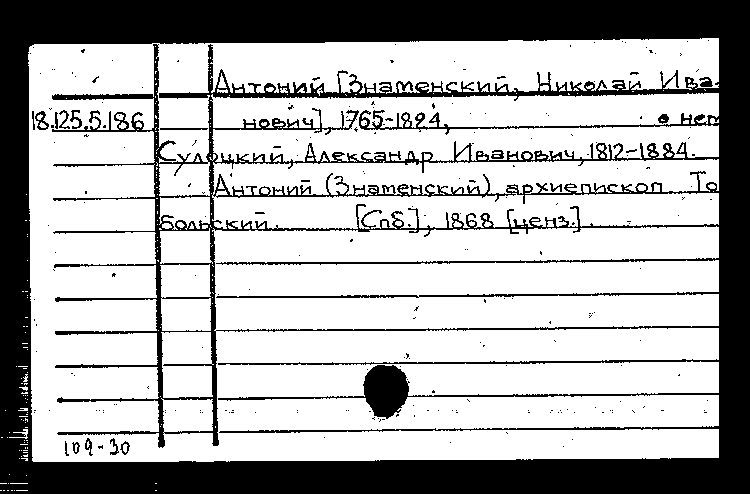 Антоний [Знаменский, Николай Ива-
18.125.5.186 нович], 1765-1824, о нем
Сулоцкий, Александр Иванович, 1812-1884.
Антоний (Знаменский), архиепископ То
больский. [Спб.], 1868 [ценз.].
109-30